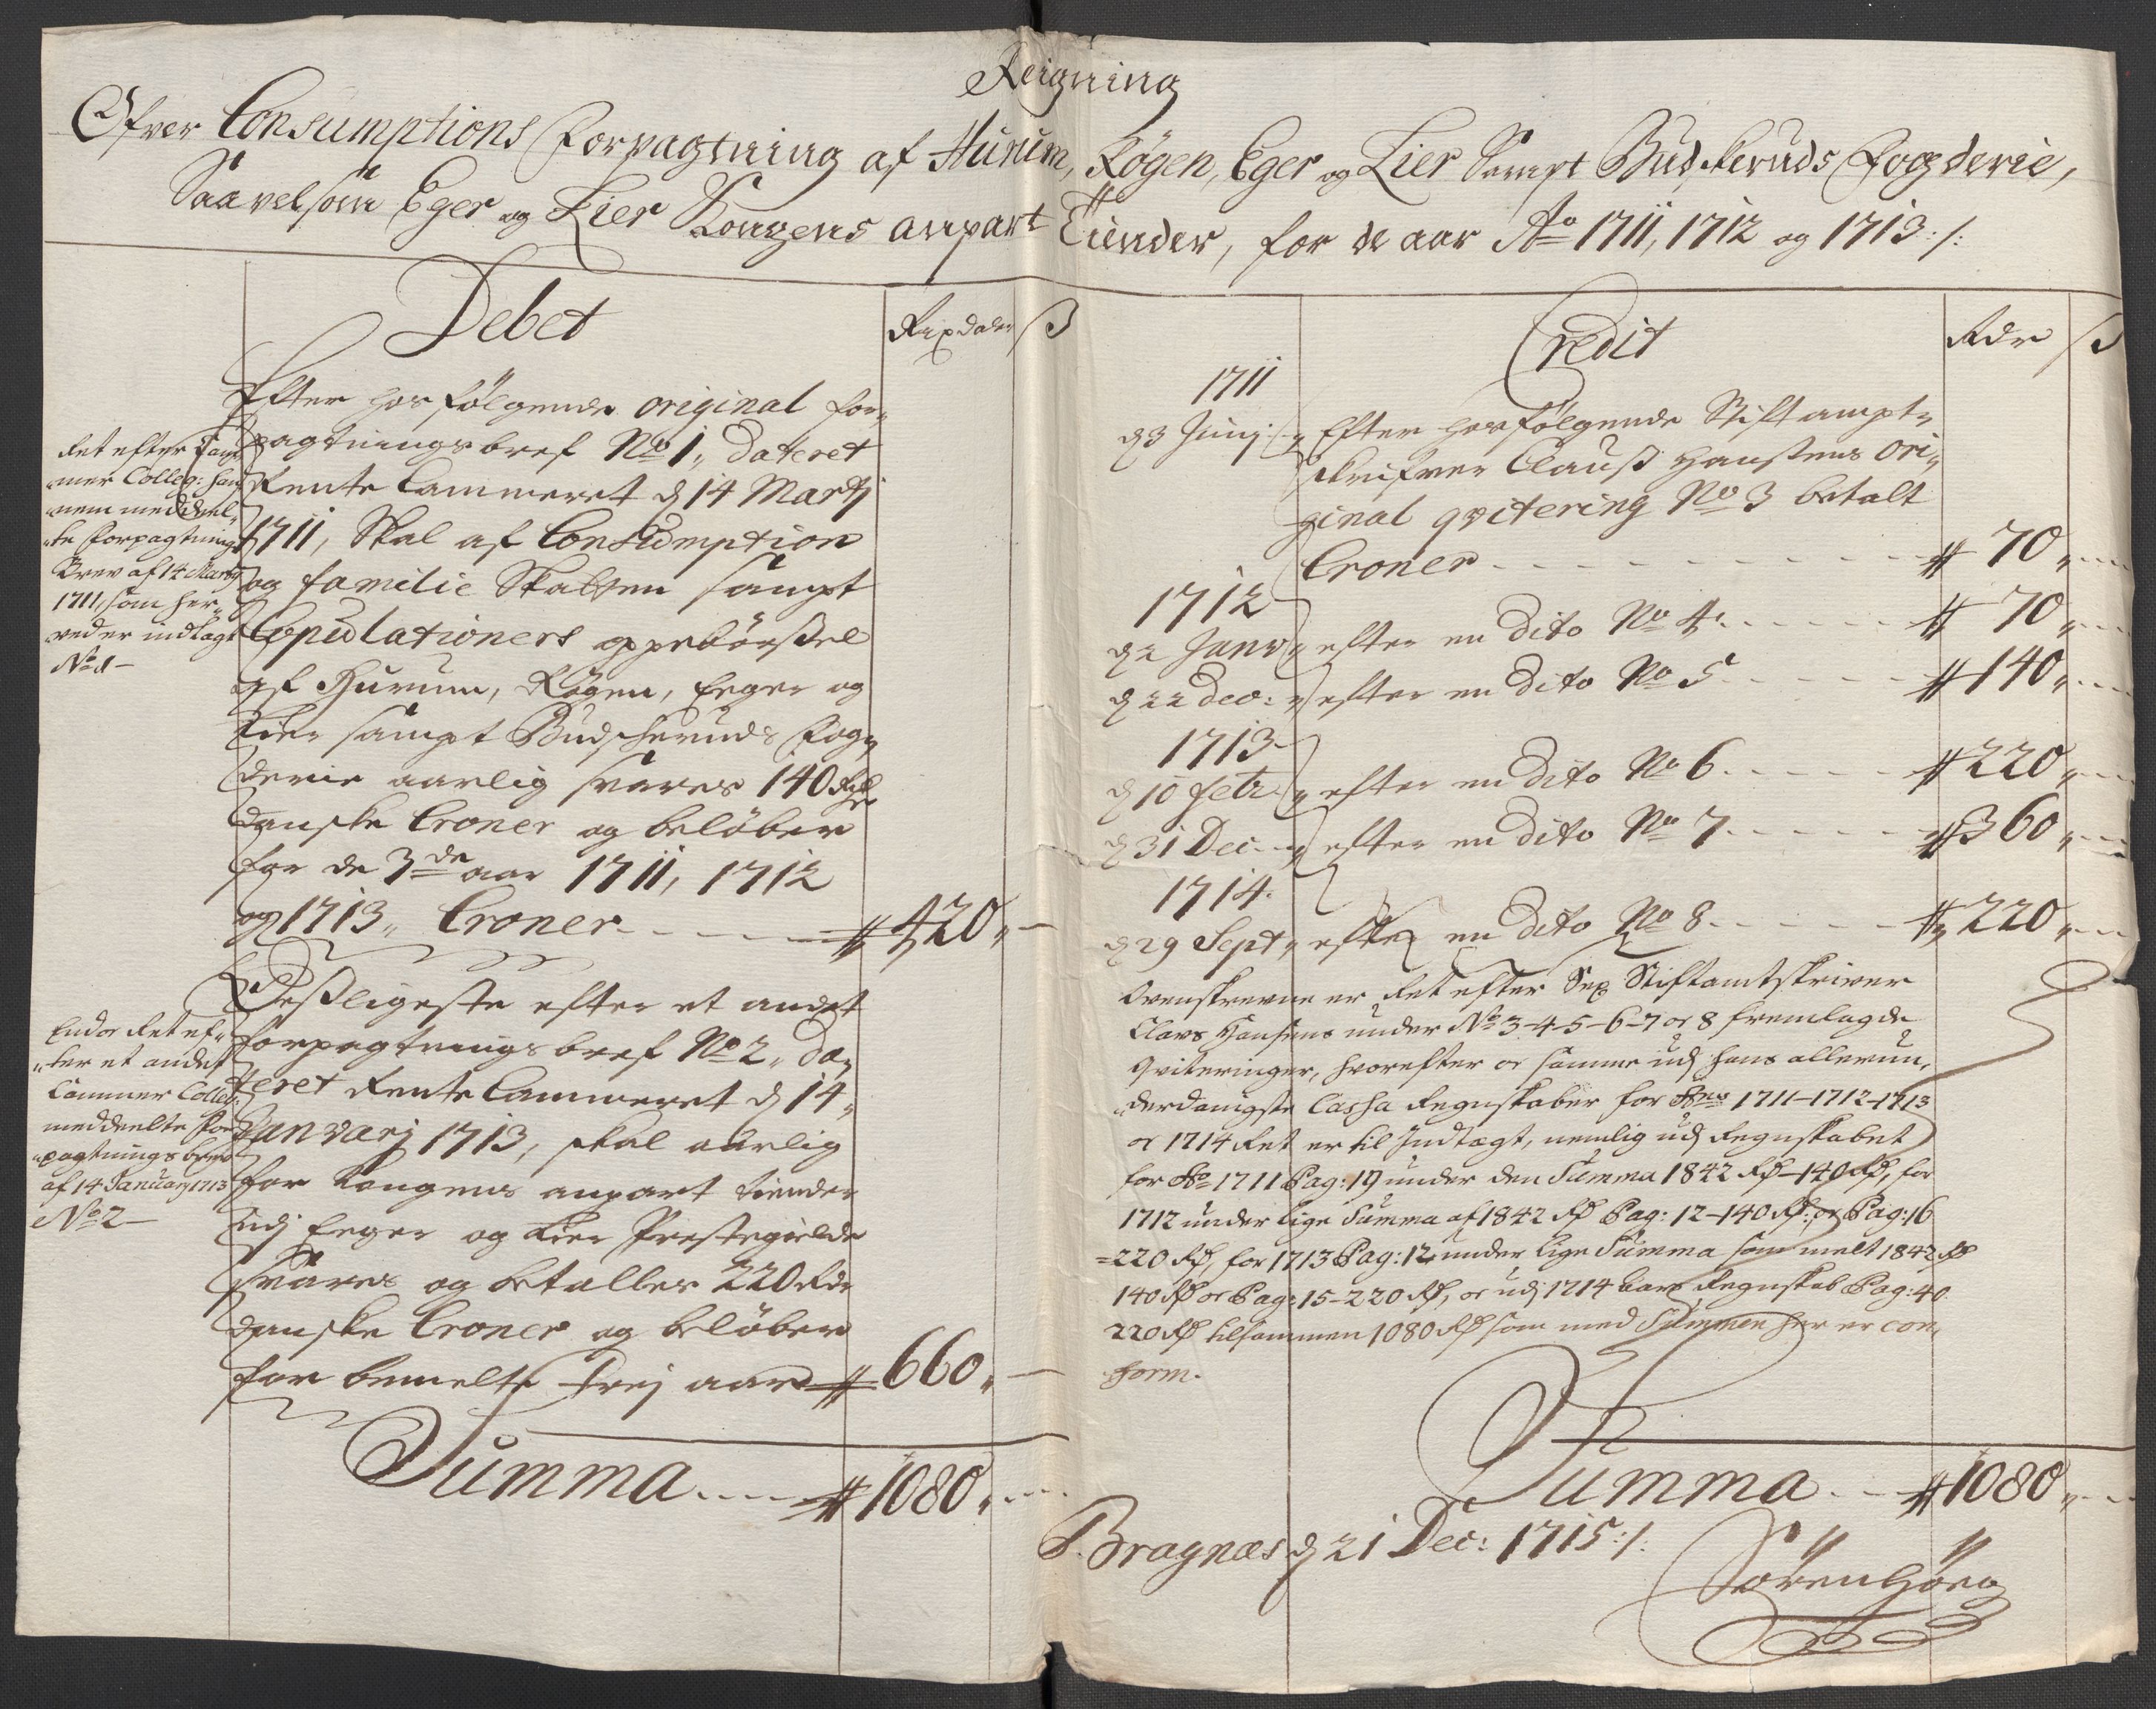 Reigning
Ofver Consumptions Forpagtning af Hurum, Røgen, Eger og Lier Sampt Budskeruds Fogderie,
Saavelsom Eger og Lier Kongens anpart Tiender, for de aar Ao 1711, 1712 og 1713 :/:
Debet
Rixdaler ß
Efter hosfølgende original for„
pagtningsbref No 1„ Dateret
Rente Cammeret d 14 Martj
1711, Skal af Consumption
og familie Skatten sampt
Copulationers oppebørssel
af Hurum, Røgen, Eeger og
Lier sampt Budscheruds Fog„
derie aarlig svares 140 Rdr
danske Croner og beløber
for de 3de aar 1711, 1712
og 1713„ Croner - - - - # 420„ -
Ret efter Cam„
mer Colleg: han„
nem meddeel„
„te Forpagtnings
Brev af 14 Martj
1711, som her„
ved er indlagt
No 1 -
Desligeste efter et andet
forpagtningsbref No 2„ Da„
teret Rente Cammeret d 14„
Januarj 1713, skal aarlig
for Kongens anpart tiender
udj Eeger og Lier Prestegielde
svares og betalles 220 Rdr
danske Croner og beløber
for bemelte trej aar # 660„ -
Endos Ret ef„
„ter et andet
Cammer Colleg:
meddeelte For„
„pagtnings brev
af 14 January 1713
No 2 -
Summa - - - # 1080„ - - -
Credit
Rdr ß
1711
d 3 Junj - „ Efter hosfølgende Stiftampt„
skrifver Clauß Hanßens ori„
ginal qvitering No 3 betalt
Croner - - - - - - - - - # 70„ - -
1712
d 2 Janv „ efter en dito No 4 - - - - - # 70„ - -
d 22 Dec: „ efter en dito No 5 - - - - - # 140„ - -
1713
d 10 Febr „ efter en dito No 6 - - - - - # 220„ - -
d 31 Dec - „ efter en dito No 7 - - - - - # 360„ - -
1714
d 29 Sept „ efter en dito No 8 - - - - - # 220„ - -
Ovenskrevne er Ret efter Sex Stiftamtskriver
Claus Hansens under No 3-4-5-6-7 os 8 fremlagde
Qviteringer, hvorefter os samme udj hans allerun„
„derdanigste Cassa Regnskaber for 1711-1712-1713
os 1714 Ret er til Indtægt, nemlig udj Regnskabet
for Ao 1711 Pag: 19 under den Summa 1842 Rd - 140 Rd, for
1712 under lige Summa af 1842 Rd Pag: 12 - 140 Rd: os Pag: 16
=220 Rd, for 1713 Pag: 12 under lige Summa som melt 1842 Rd
140 Rd os Pag: 15 - 220 Rd, os udj 1714 Regnskab Pag: 40
220 Rd tilsammen 1080 Rd som med Summen her er con„
form.
Summa - - # 1080„ - -
Bragnæs d 21 Dec: 1715 :/:
Søren